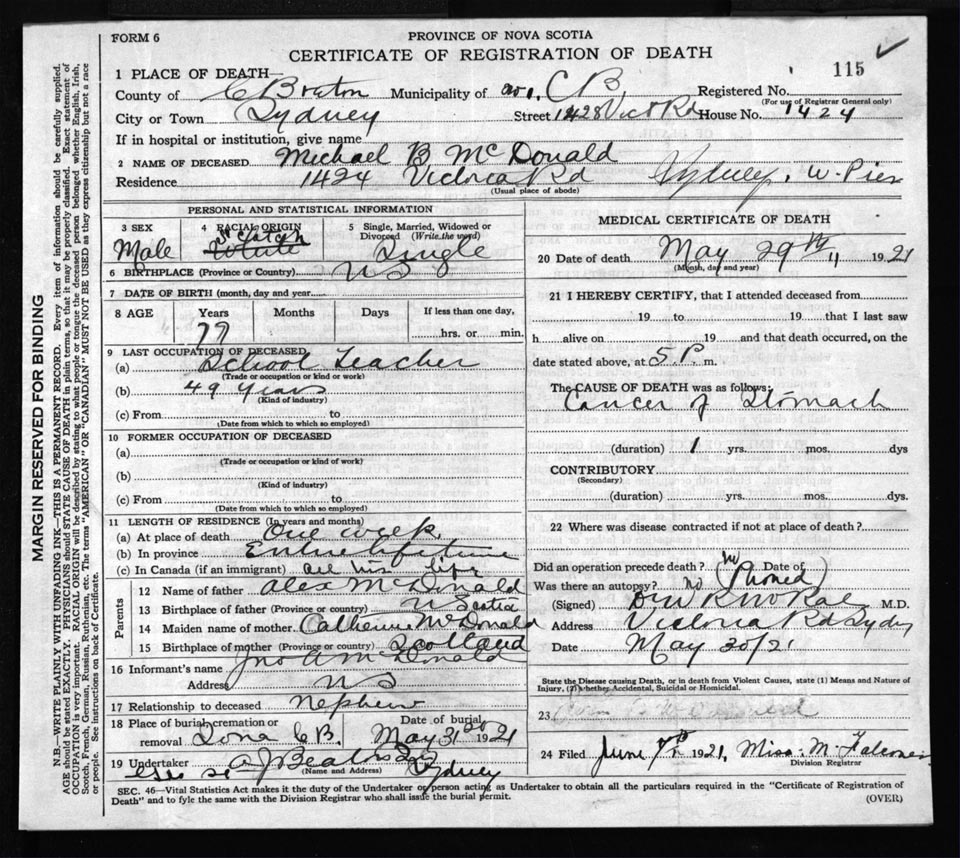 FORM 6
PROVINCE OF NOVA SCOTIA
CERTIFICATE OF REGISTRATION OF DEATH
115
1 PLACE OF DEATH—
County of C Breton Municipality of C B Registered No.
(For use of Registrar General only)
City or Town Sydney Street 1428 Vict Rd House No. 1424
If in hospital or institution, give name
2 NAME OF DECEASED Michael B McDonald
Residence 1424 Victoria Rd Sydney, W. Pier
(Usual place of abode)
PERSONAL AND STATISTICAL INFORMATION
3 SEX 4 RACIAL ORIGIN 5 Single, Married, Widowed or Divorced (Write the word)
Male Scotch White Single
6 BIRTHPLACE (Province or Country) NS
7 DATE OF BIRTH (month, day and year)
8 AGE Years Months Days If less than one day,
77 hrs. or min.
9 LAST OCCUPATION OF DECEASED
(a) School Teacher
(Trade or occupation or kind or work)
(b) 49 Years
(Kind of industry)
(c) From to
(Date from which to which so employed)
10 FORMER OCCUPATION OF DECEASED
(a)
(Trade or occupation or kind of work)
(b)
(Kind of industry)
(c) From to
(Date from which to which so employed)
11 LENGTH OF RESIDENCE (In years and months)
(a) At place of death One week
(b) In province Entire lifetime
(c) In Canada (if an immigrant) all his life
Parents
12 Name of father Alex McDonald
13 Birthplace of father (Province or country) N Scotia
14 Maiden name of mother Catherine McDonald
15 Birthplace of mother (Province or country) Scotland
16 Informant's name Jno A McDonald
Address NS
17 Relationship to deceased Nephew
18 Place of burial, cremation or removal Iona C B. Date of burial May 31st 1921
19 Undertaker A J Beaton
(Name and Address) Sydney
MEDICAL CERTIFICATE OF DEATH
20 Date of death May 29th 1921
(Month, day and year)
21 I HEREBY CERTIFY, that I attended deceased from
19 to 19 that I last saw
h alive on 19 and that death occurred, on the
date stated above, at 5 P m.
The CAUSE OF DEATH was as follows:
Cancer of Stomach
(duration) 1 yrs. mos. dys
CONTRIBUTORY
(Secondary)
(duration) yrs. mos. dys.
22 Where was disease contracted if not at place of death?
Did an operation precede death? No Date of
Was there an autopsy? No (Phoned)
(Signed) M.D.
Address Victoria Rd Sydney
Date May 30/21
State the Disease causing Death, or in death from Violent Causes, state (1) Means and Nature of
Injury, (2) whether Accidental, Suicidal or Homicidal.
23
24 Filed June 7th 1921, Miss M.
Division Registrar
SEC. 46—Vital Statistics Act makes it the duty of the Undertaker or person acting as Undertaker to obtain all the particulars required in the "Certificate of Registration of
Death" and to fyle the same with the Division Registrar who shall issue the burial permit.
(OVER)
MARGIN RESERVED FOR BINDING
N.B.—WRITE PLAINLY WITH UNFADING INK—THIS IS A PERMANENT RECORD. Every item of information should be carefully supplied.
AGE should be stated EXACTLY. PHYSICIANS should STATE CAUSE OF DEATH in plain terms, so that it may be properly classified. Exact statement of
OCCUPATION is very important. RACIAL ORIGIN will be described by stating to what people or tongue the deceased person belonged whether English, Irish,
Scotch, French, German, Russian, Ruthenian, etc. The terms "AMERICAN" OR "CANADIAN" MUST NOT BE USED as they express citizenship but not a race
or people. See instructions on back of Certificate.